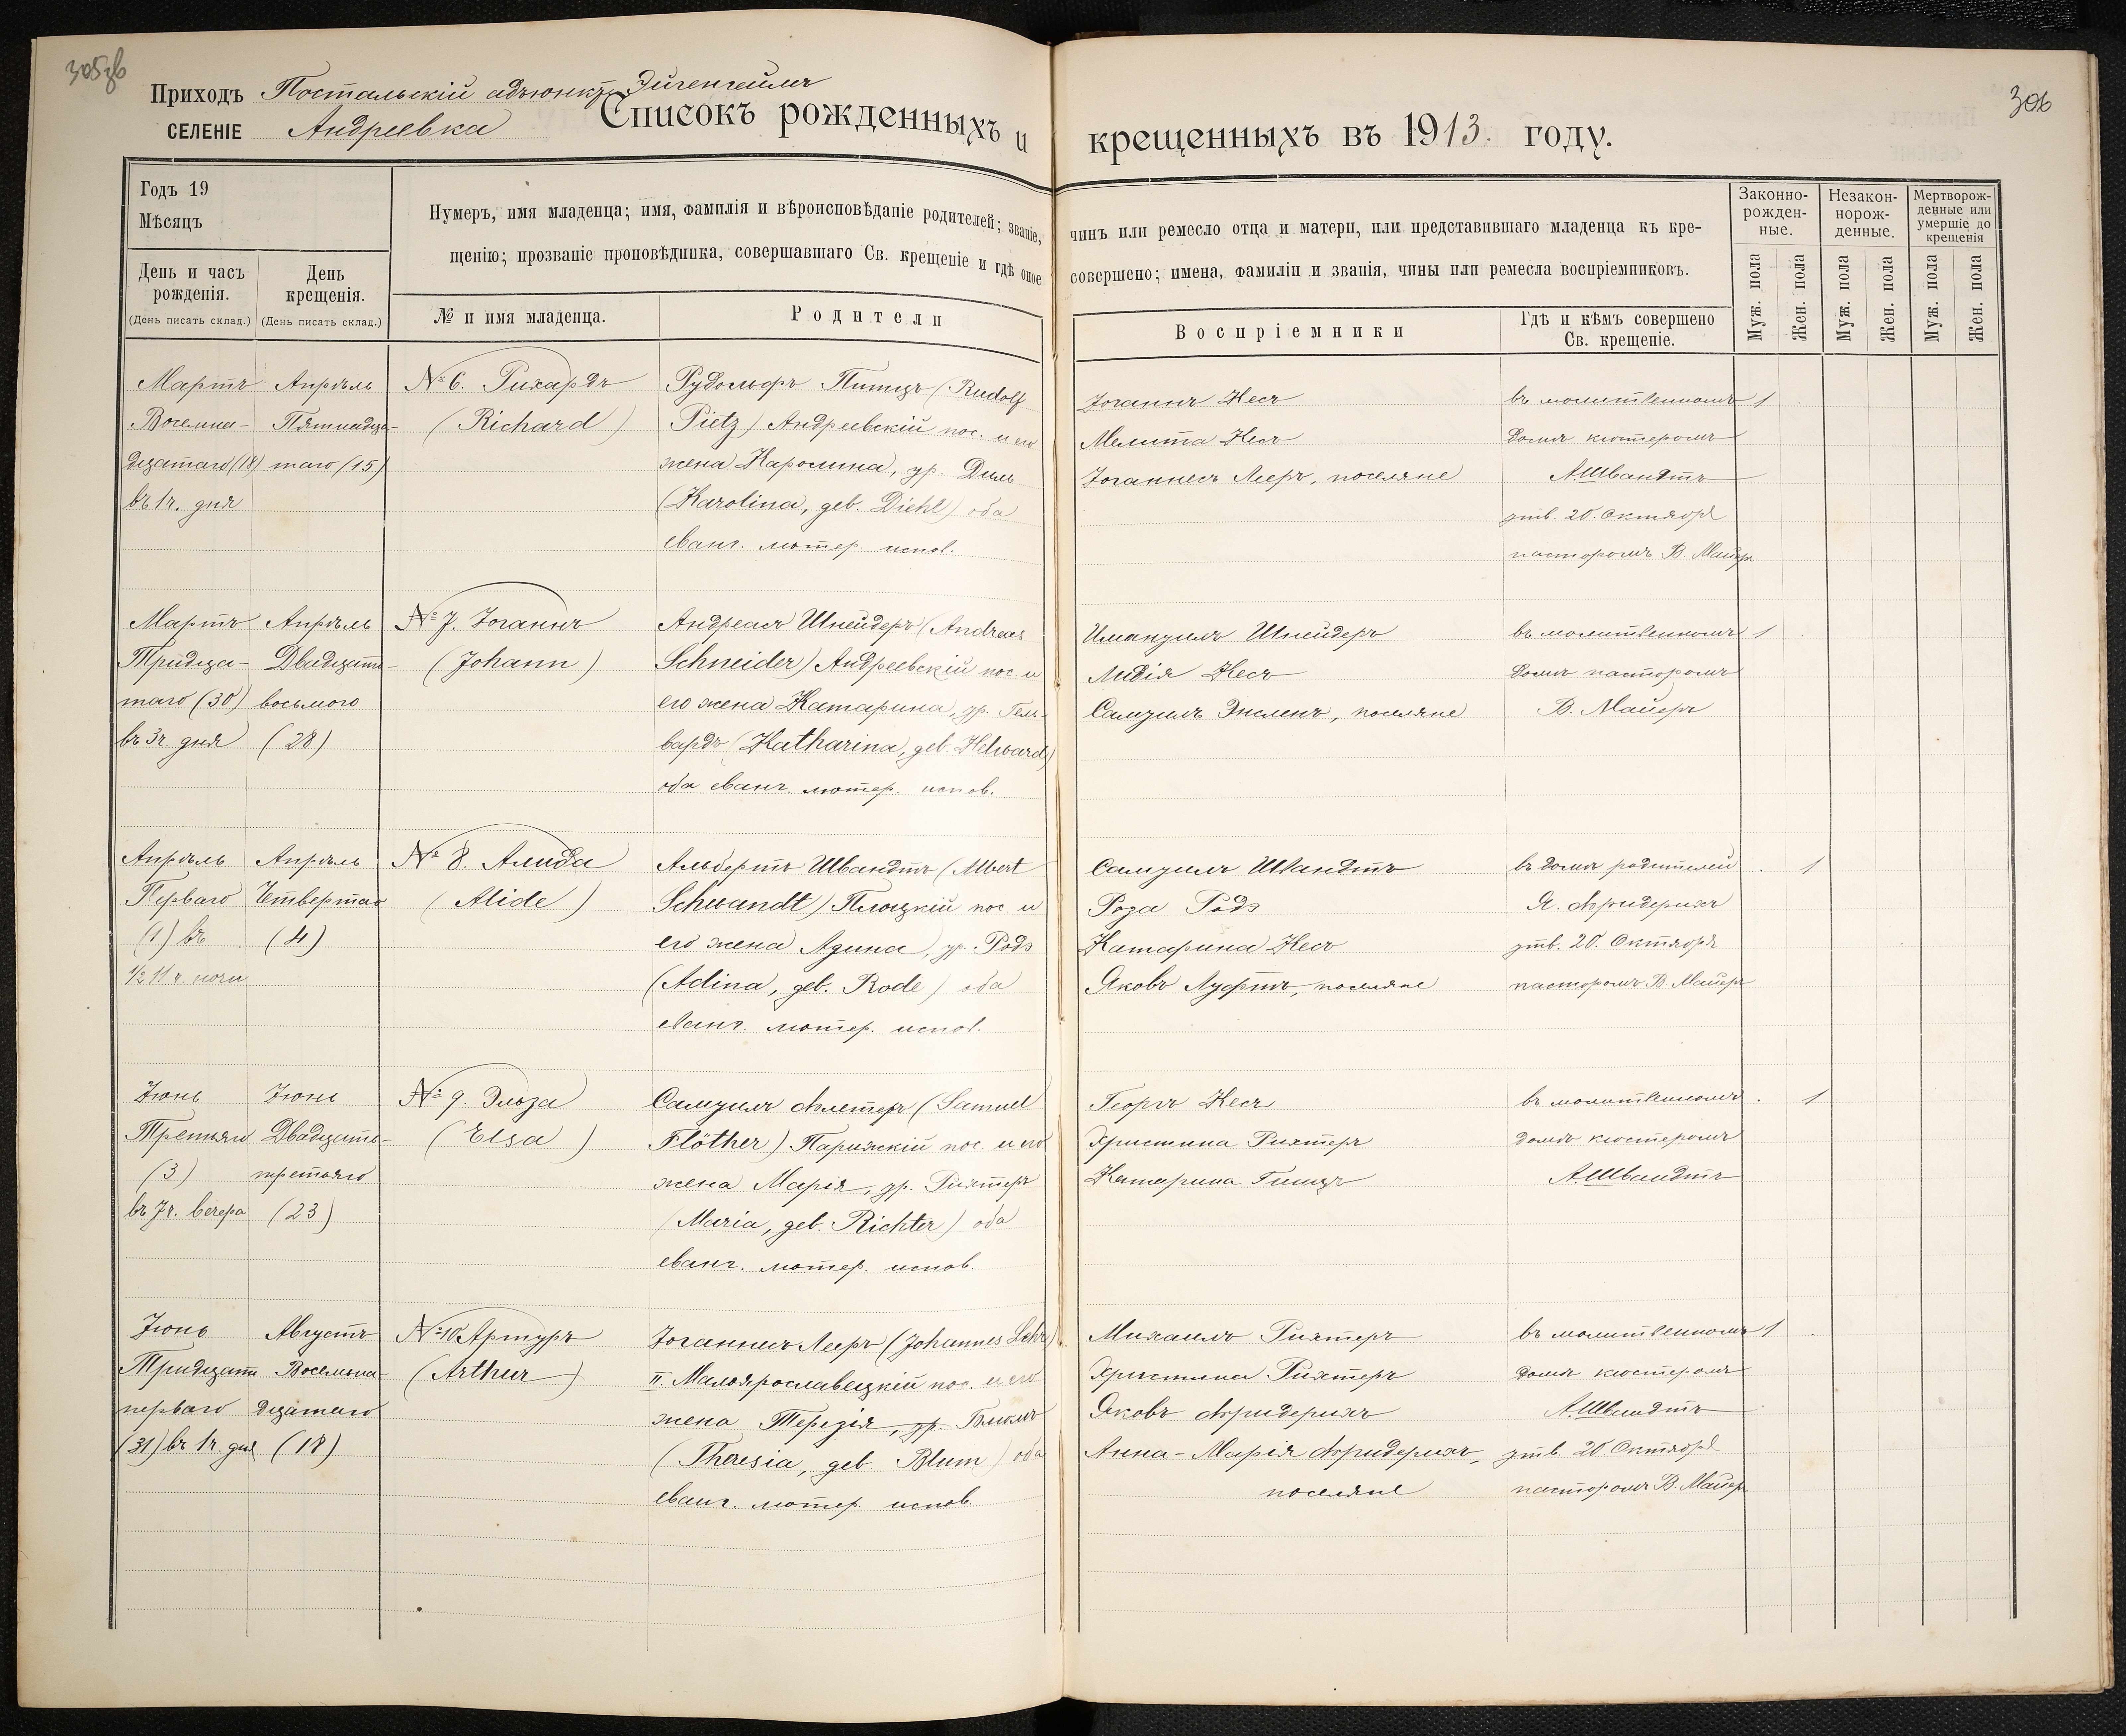 305об
306
Приходъ Постальскій адъюнктъ Эйгенгеймъ
СЕЛЕНІЕ Андреевка
Списокъ рожденныхъ и крещенныхъ въ 1913. году.
Годъ 19
Мѣсяцъ
День и часъ рожденія.
(День писать склад.)
День крещенія.
(День писать склад.)
Нумеръ, имя младенца; имя, фамилія и вѣроисповѣданіе родителей; званіе, чинъ или ремесло отца и матери, или представившаго младенца къ кре-
щенію; прозваніе проповѣдника, совершавшаго Св. крещеніе и гдѣ оное совершено; имена, фамиліи и званія, чины или ремесла воспріемниковъ.
№ и имя младенца.
Родители
Воспріемники
Гдѣ и кѣмъ совершено
Св. крещеніе.
Законно-
рожден-
ные.
Незакон-
норож-
денные.
Мертворож-
денные или
умершіе до
крещенія
Муж. пола
Жен. пола
Муж. пола
Жен. пола
Муж. пола
Жен. пола
Мартъ
Восемна-
дцатаго (18)
въ 1 ч. дня
Апрѣль
Пятнадца-
таго (15)
№ 6. Рихардъ
(Richard)
Рудольфъ Питцъ (Rudolf
Pietz) Андреевскій пос. и его
жена Каролина, ур. Диль
(Karolina, geb. Diehl) оба
еванг. лютер. испов.
Іоганнъ Несъ
Мелита Несъ
Іоганнесъ Лееръ, поселяне
въ молитвенномъ
домѣ кюстеромъ
А. Швандтъ
утв. 20. Октября
пасторомъ В. Майеръ
1
Мартъ
Тридца-
таго (30)
въ 3 ч. дня
Апрѣль
Двадцать-
восьмого
(28)
№ 7. Іоганнъ
(Johann)
Андреасъ Шнейдеръ (Andreas
Schneider) Андреевскій пос. и
его жена Катарина, ур. Гель-
вардъ (Katharina, geb. Helward)
оба еванг. лютер. испов.
Имануилъ Шнейдеръ
Лидія Несъ
Самуилъ Энсленъ, поселяне
въ молитвенномъ
домѣ пасторомъ
В. Майеръ
1
Апрѣль
Перваго
(1) въ
1/2 11 ч. ночи
Апрѣль
Четвертаго
(4)
№ 8. Алида
(Alide)
Альбертъ Швандтъ (Albert
Schwandt) Плоцкій пос. и
его жена Адина, ур. Родэ
(Adina, geb. Rode) оба
еванг. лютер. испов.
Самуилъ Швандтъ
Роза Родэ
Катарина Несъ
Яковъ Луфтъ, поселяне
въ домѣ родителей
Я. Фридерихъ
утв. 20. Октября
пасторомъ В. Майеръ
1
Іюнь
Третьяго
(3)
въ 7 ч. вечера
Іюнь
Двадцать-
третьяго
(23)
№ 9. Эльза
(Elsa)
Самуилъ Флетеръ (Samuel
Flöther) Парижскій пос. и его
жена Марія, ур. Рихтеръ
(Maria, geb. Richter) оба
еванг. лютер. испов.
Георгъ Несъ
Христина Рихтеръ
Катарина
въ молитвенномъ
домѣ кюстеромъ
А. Швандтъ
1
Іюнь
Тридцать
перваго
(31) въ 1 ч. дня
Августъ
Восемьна-
дцатаго
(18)
№ 10 Артуръ
(Arthur)
Іоганнесъ Лееръ (Johannes Lehr)
II. Малоярославецкій пос. и его
жена Терезія, ур. Блюмъ
(Theresia, geb. Blum) оба
еванг. лютер. испов.
Михаилъ Рихтеръ
Христина Рихтеръ
Яковъ Фридерихъ
Анна-Марія Фридерихъ,
поселяне
въ молитвенномъ
домѣ кюстеромъ
А. Швандтъ
утв. 20 Октября
пасторомъ В. Майеръ
1